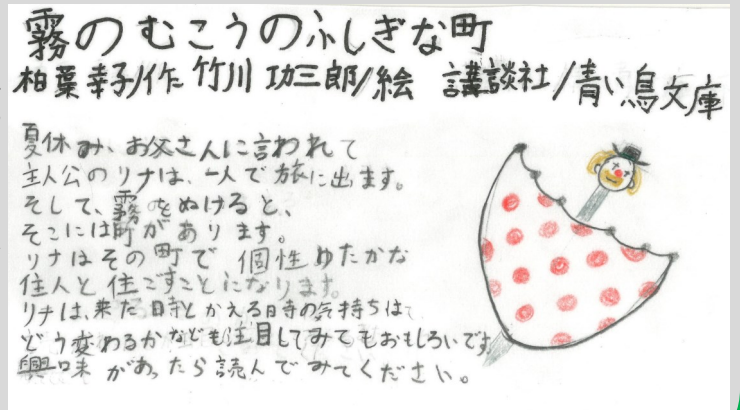 霧のむこうのふしぎな町
柏葉幸子/作 竹川功三郎/絵 講談社/青い鳥文庫
夏休み、お父さんに言われて
主人公のリナは、一人で旅に出ます。
そして、霧をぬけると、
そこには町があります。
リナはその町で個性ゆたかな
住人と住ごすことになります。
リナは、来た時とかえる時の気持ちは
どう変わるかなども注目してみてもおもしろいです。
興味があったら読んでみてください。